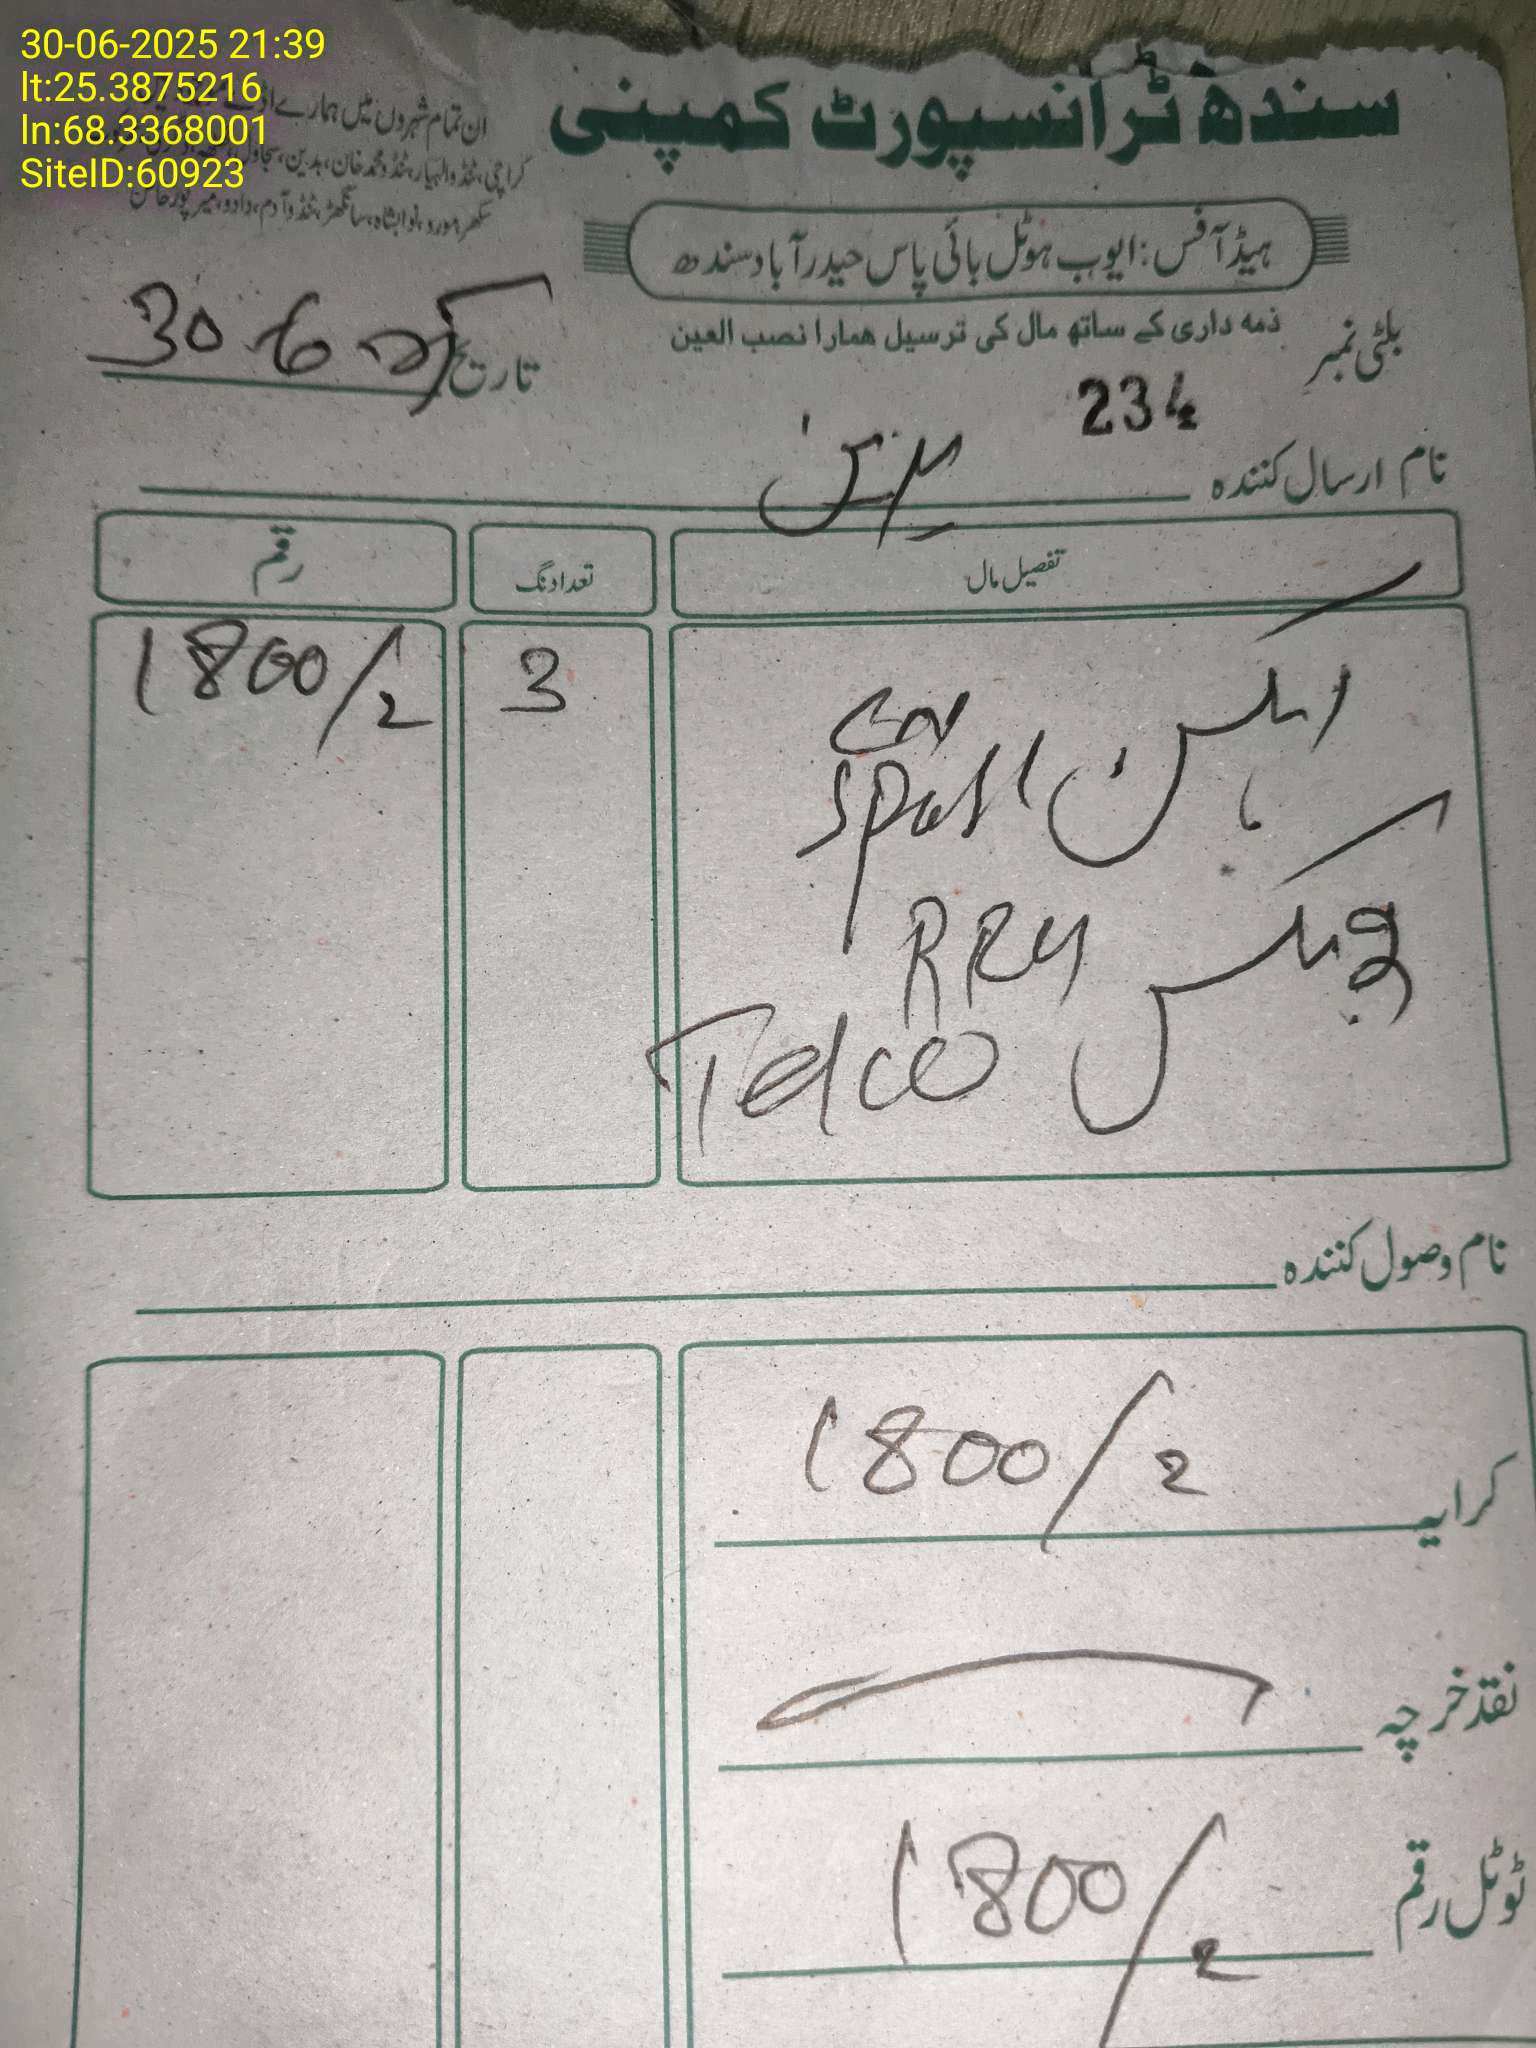 30-06-2025 21:39
lt:25.3875216
ln:68.3368001
SiteID:60923
سندھ ٹرانسپورٹ کمپنی
ان تمام شہروں میں ہمارے
کراچی، ٹنڈوالہیار، ٹنڈومحمدخان، بدین، سجاول
سکھر، مورو، نوابشاہ، سانگھڑ، ٹنڈوآدم، دادو، میرپورخاص
ہیڈ آفس : ایوب ہوٹل بائی پاس حیدرآباد سندھ
ذمہ داری کے ساتھ مال کی ترسیل ھمارا نصب العین
بلٹی نمبر 234
تاریخ 30.6.25
نام ارسال کنندہ
تفصیل مال تعدادنگ رقم
3 1800/2
RRU
Telco
نام وصول کنندہ
کرایہ 1800/2
نقد خرچہ
ٹوٹل رقم 1800/2